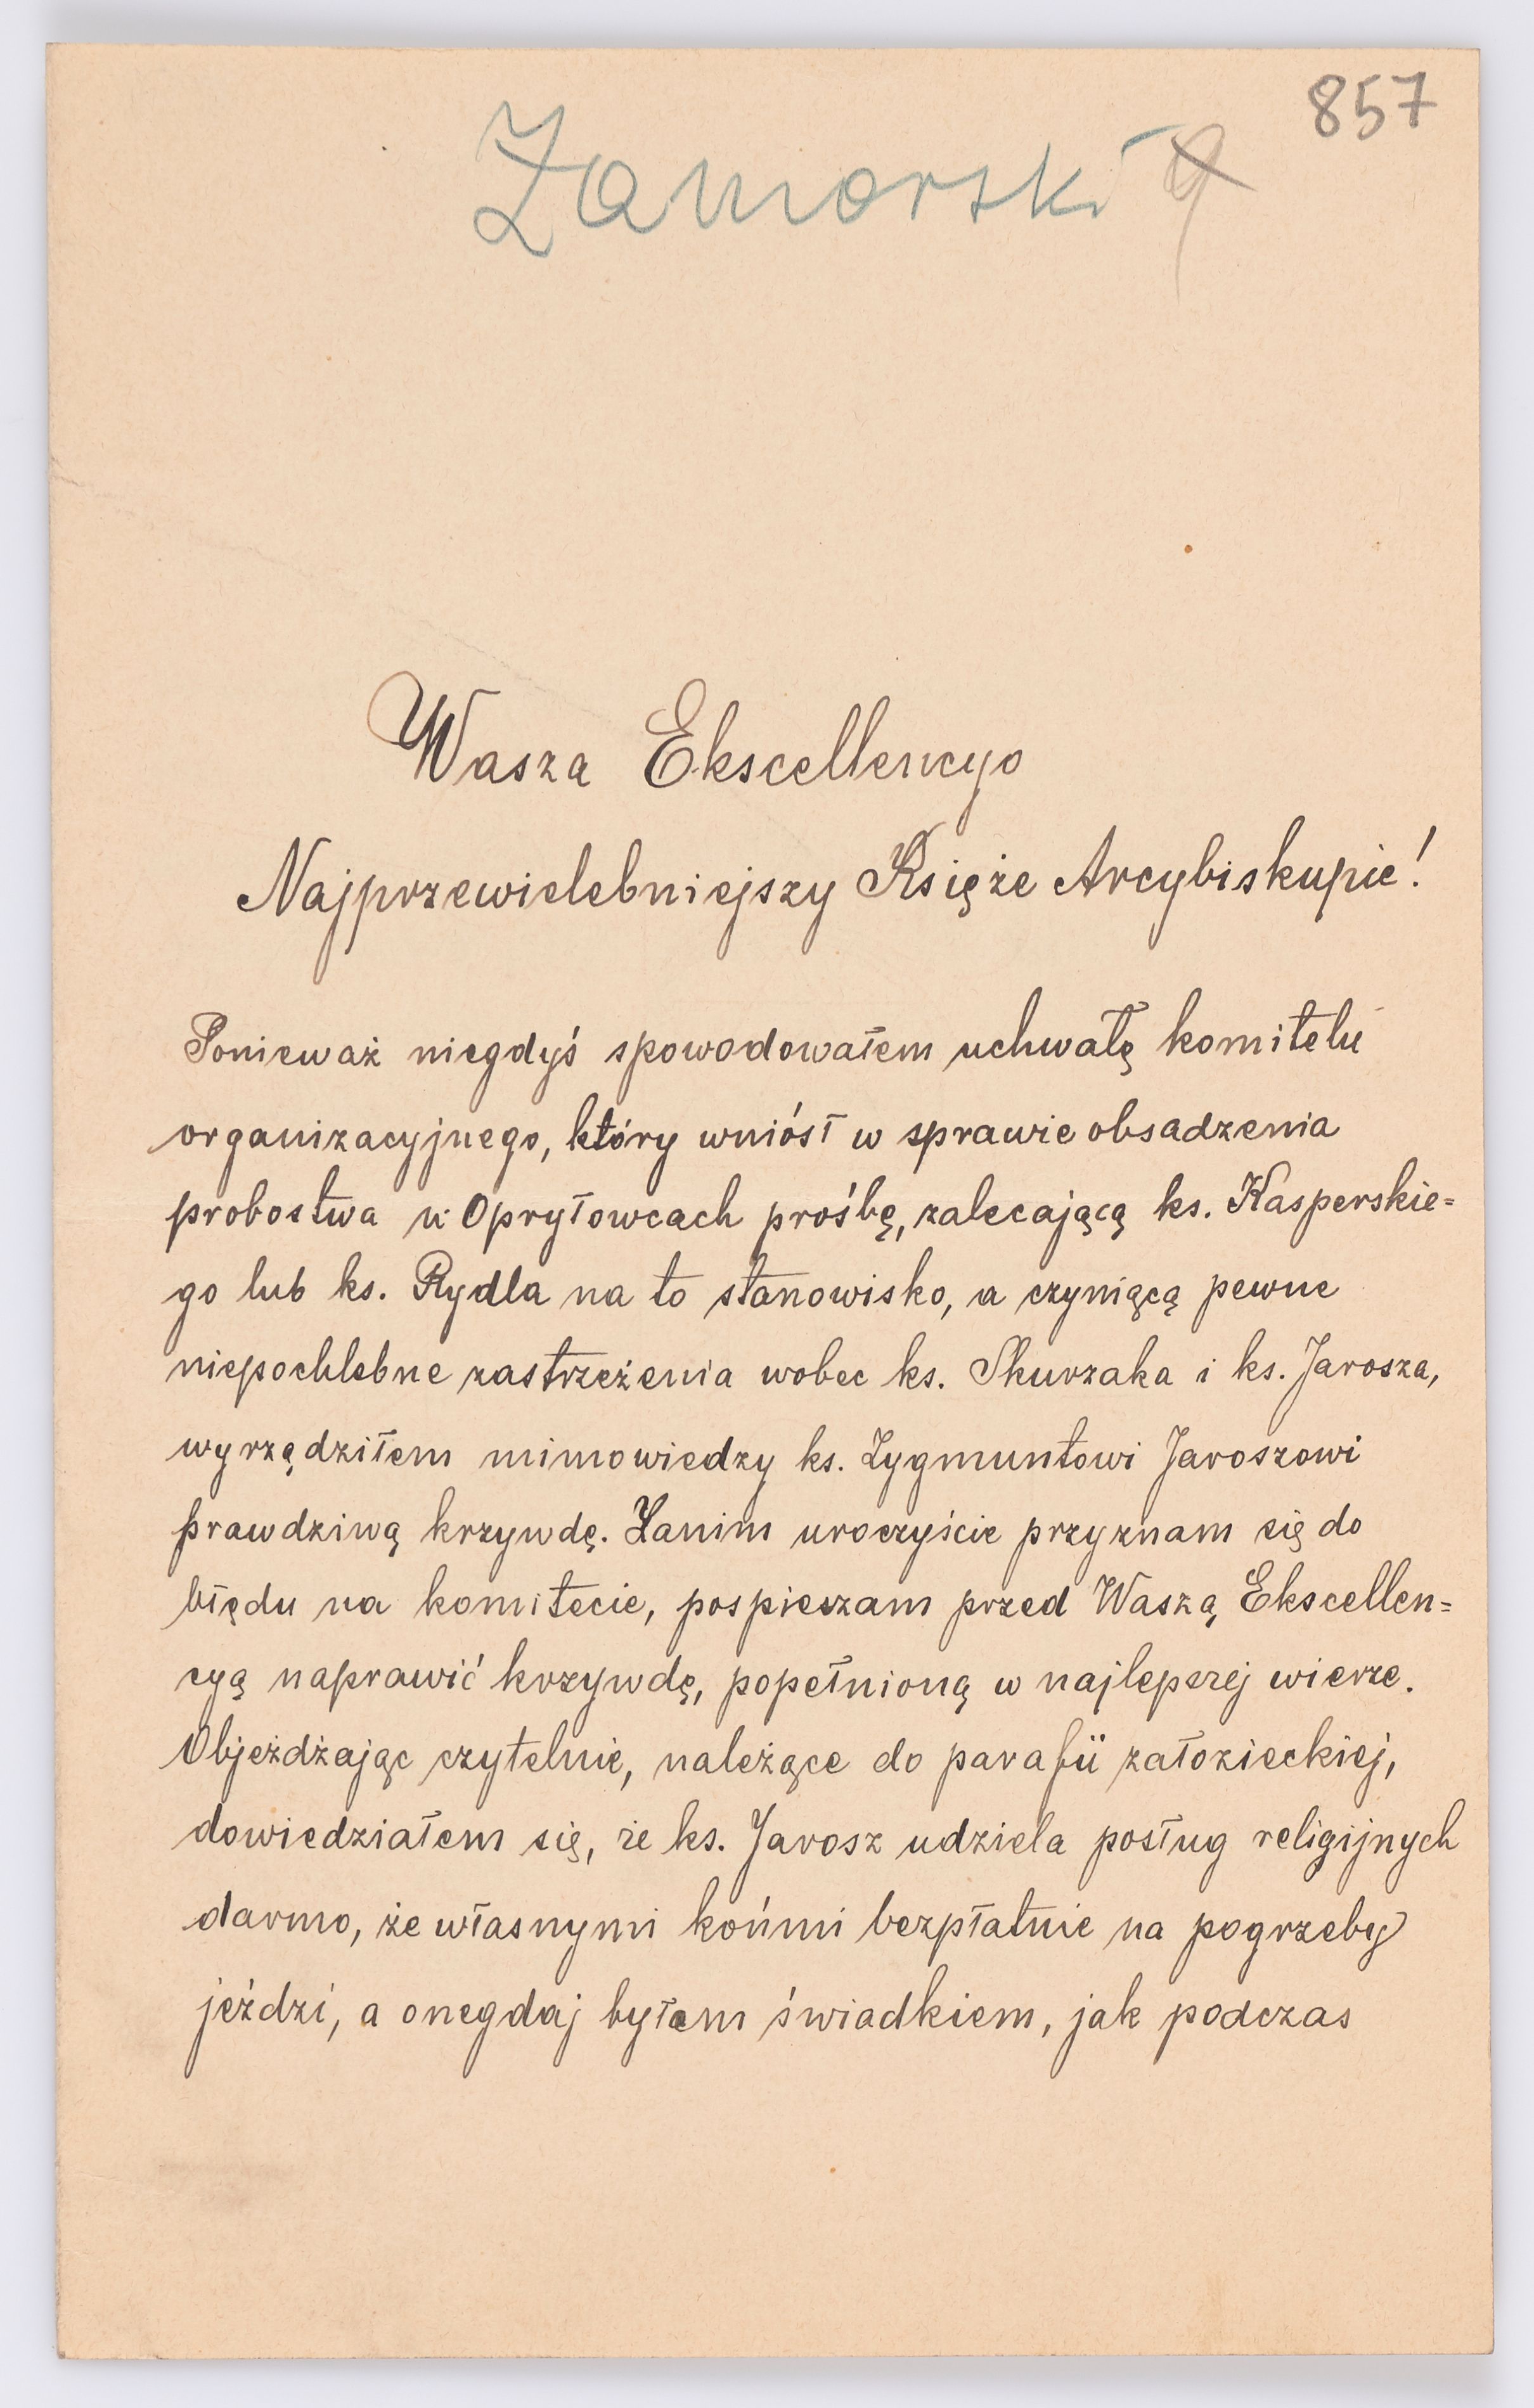 857
Zamorski 9
Wasza Ekscellencyo
Najprzewielebniejszy Księże Arcybiskupie!
Ponieważ niegdyś spowodowałem uchwałę komitetu
organizacyjnego, który wniósł w sprawie obsadzenia
probostwa w Opryłowcach prośbę, zalecającą ks. Kasperskie=
go lub ks. Rydla na to stanowisko, a czyniącą pewne
niepochlebne zastrzeżenia wobec ks. Skurzaka i ks. Jarosza,
wyrządziłem mimowiedzy ks. Zygmuntowi Jaroszowi
prawdziwą krzywdę. Zanim uroczyście przyznam się do
błędu na komitecie, pospieszam przed Waszą Ekscellen=
cyą naprawić krzywdę, popełnioną w najlepszej wierze.
Objeżdżając czytelnie, należące do parafii załozieckiej,
dowiedziałem się, że ks. Jarosz udziela posług religijnych
darmo, że własnymi końmi bezpłatnie na pogrzeby
jeździ, a onegdaj byłem świadkiem, jak podczas